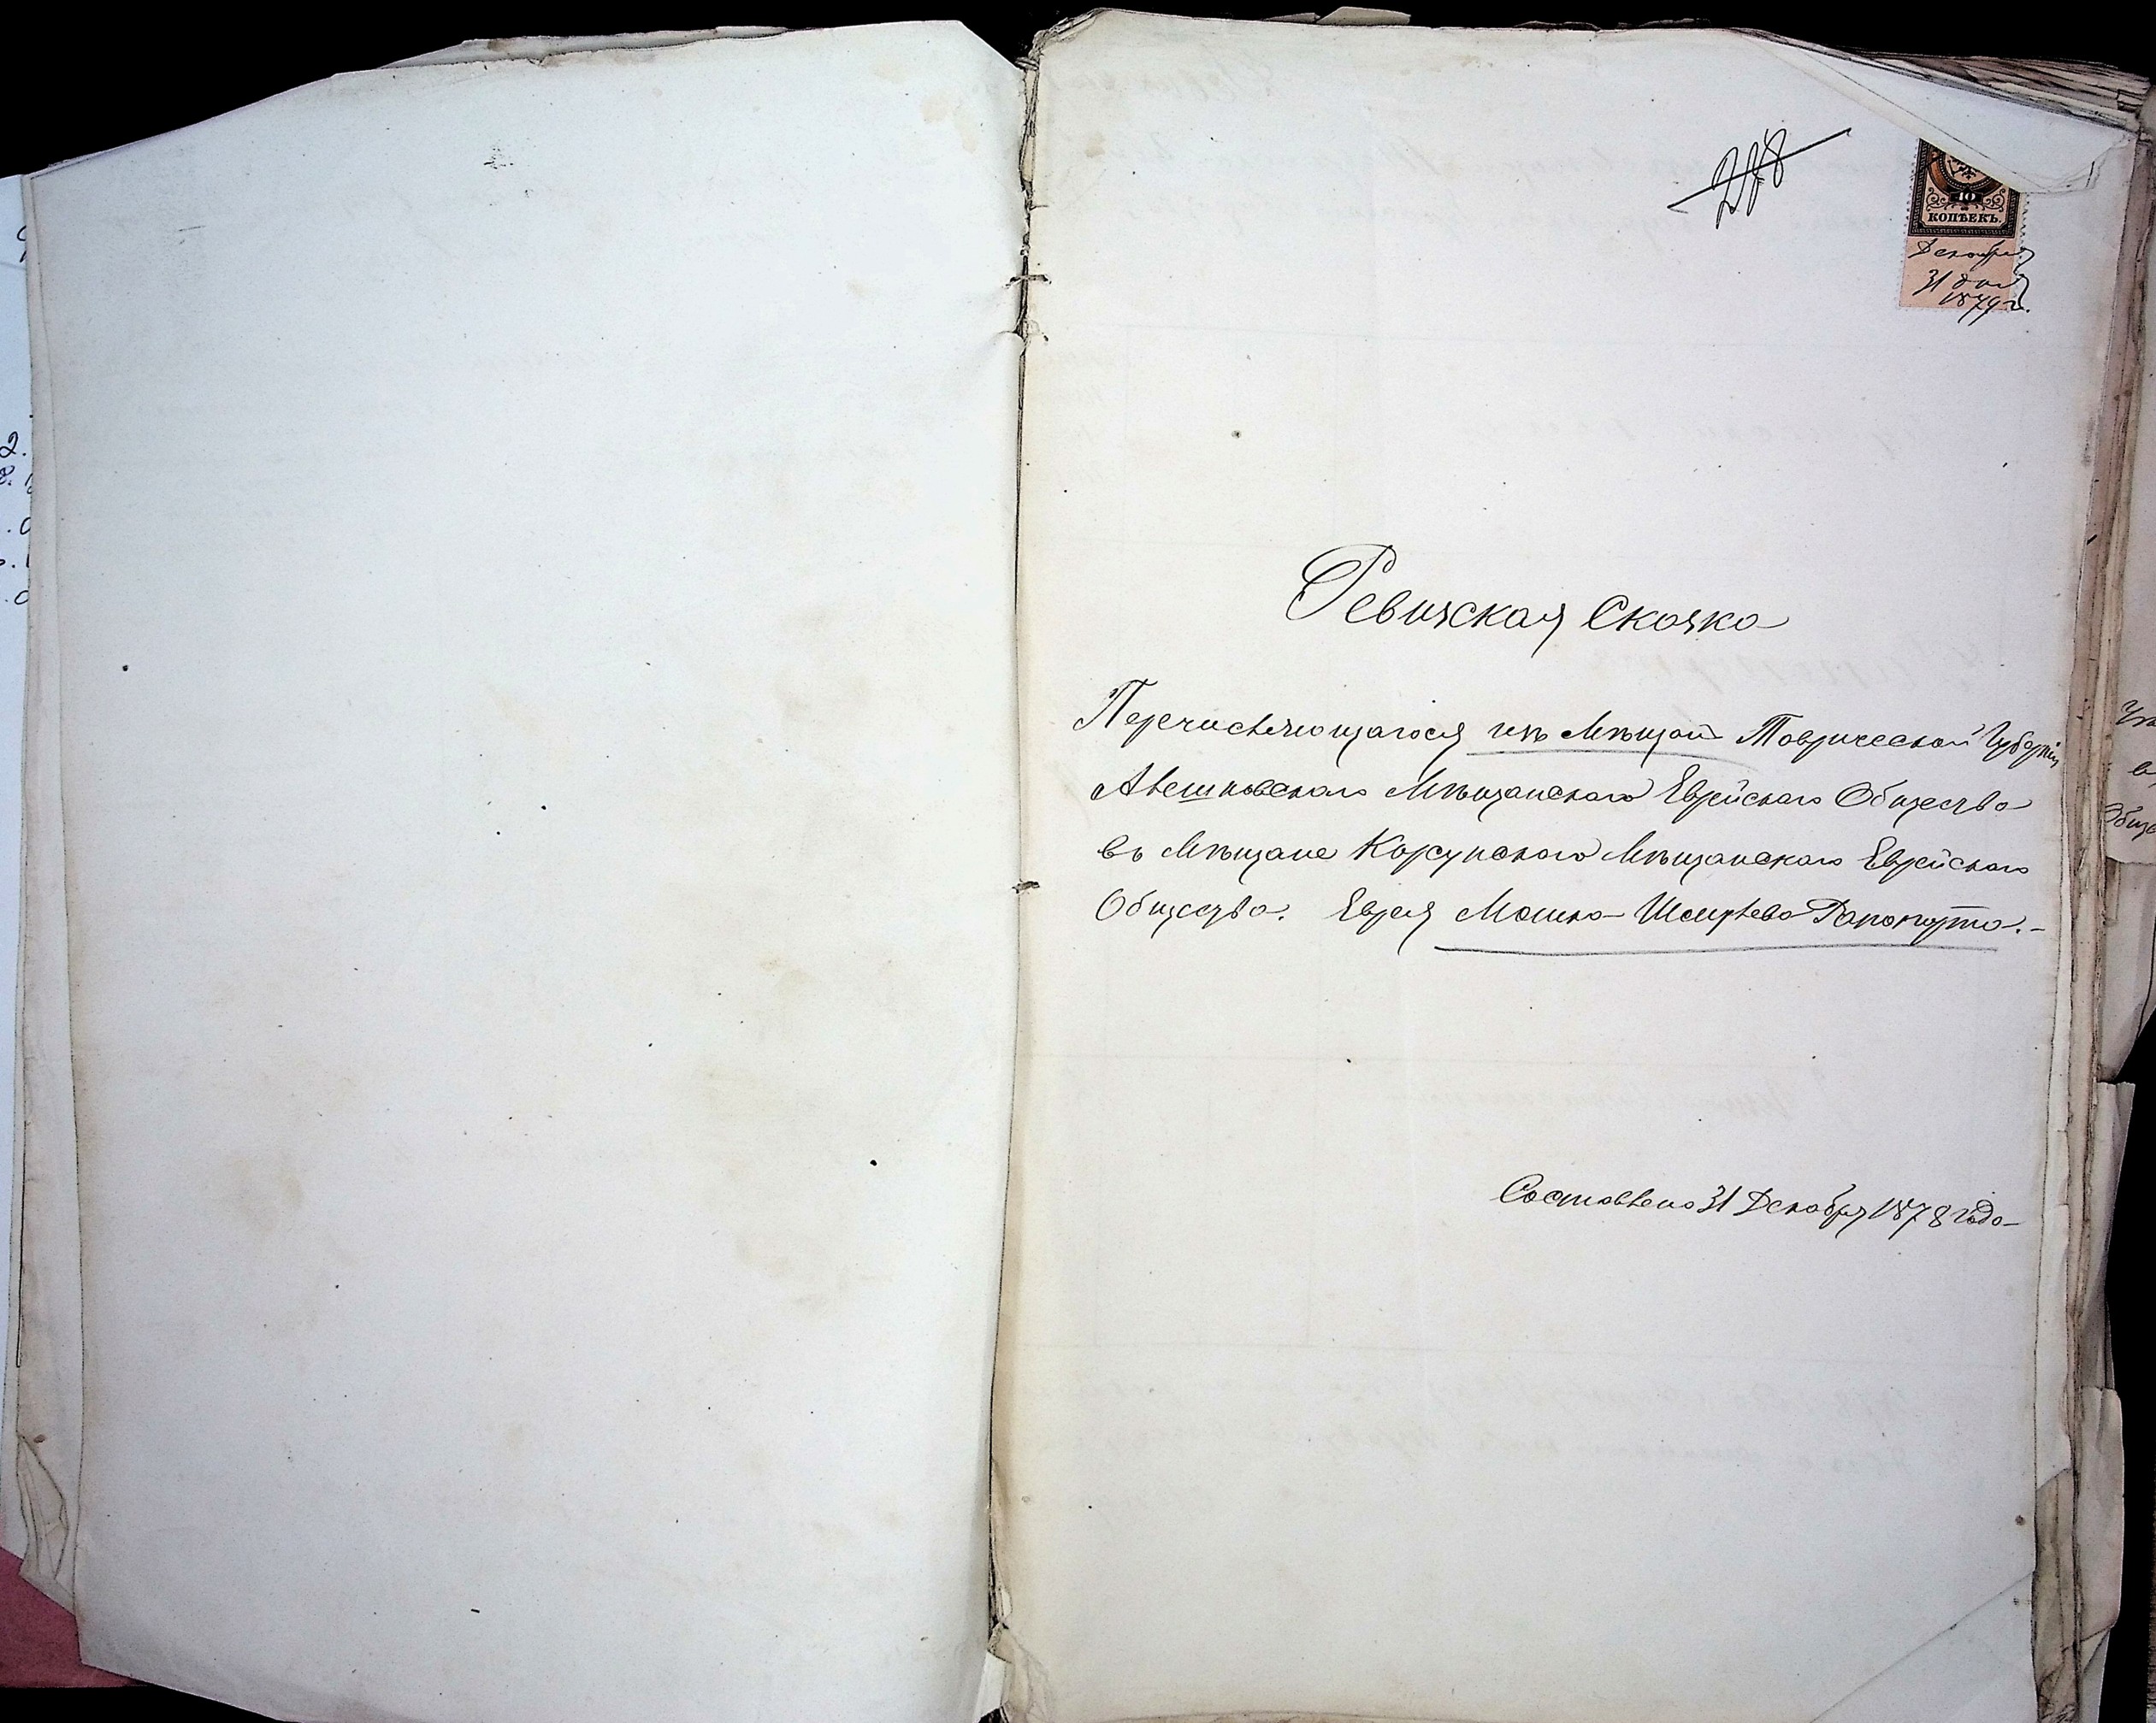 288
10
КОПѢЕКЪ.
Декабря
31 дня
1879 г.
Ревизская Сказка
Перечисляющагося изъ Мѣщан Таврической Губерніи
Алешковскаго Мѣщанскаго Еврейскаго Общества
въ Мѣщане Корсунскаго Мѣщанскаго Еврейскаго
Общества. Еврея Мошка Шмулева Рапопорта.-
Составлена 31 Декабря 1878 года